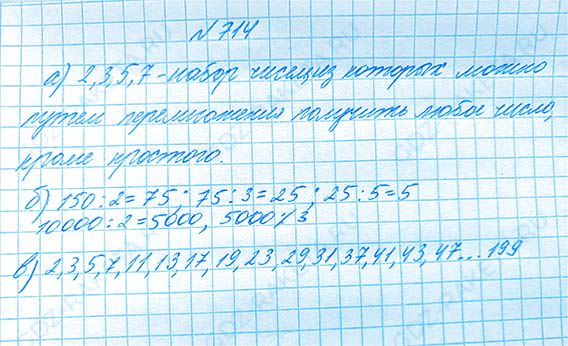 № 714
а) 2,3,5,7 - набор чисел, из которых можно
путём перемножения получить любое число,
кроме простого.
б) 150 : 2 = 75 ; 75 : 3 = 25 ; 25 : 5 = 5
10000 : 2 = 5000, 5000 ⁒ 3
в) 2,3,5,7,11,13,17,19,23,29,31,37,41,43,47...199